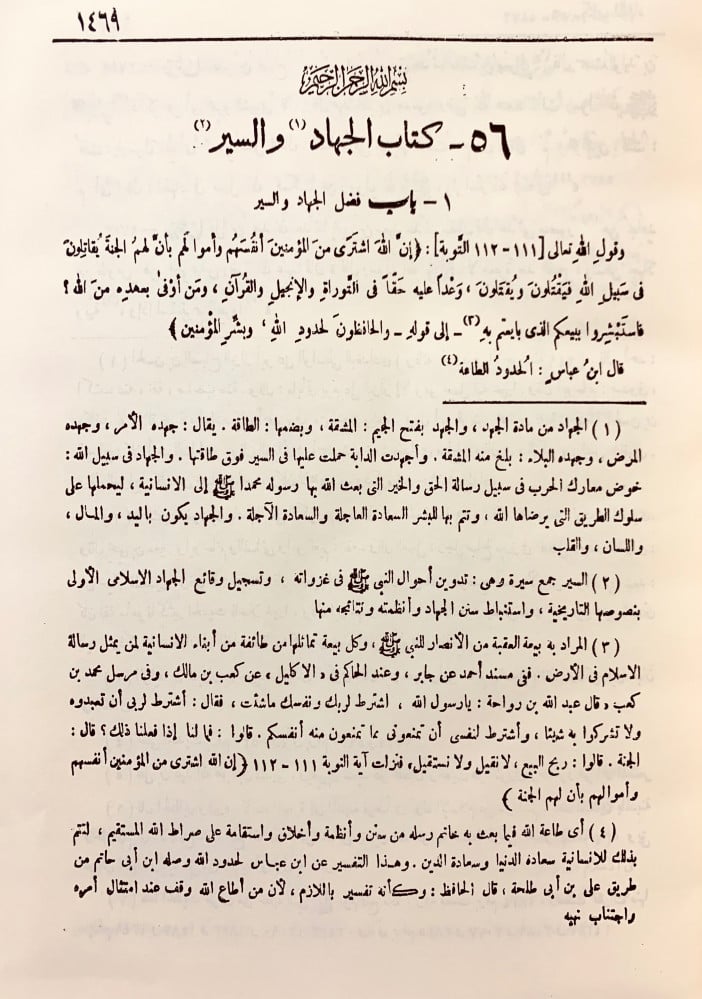 ١٤٦٩
بسم الله الرحمن الرحيم
٥٦ - كتاب الجهاد (١) والسير (٢)
١ - باب فضل الجهاد والسير
وقولِ اللهِ تعالى [١١١ - ١١٢ التَّوبة] : ﴿إنَّ اللهَ اشترَى منَ المؤمنينَ أنفُسَهُم وأموالَهم بأنَّ لهمُ الجنةَ يُقاتِلونَ
فى سَبيلِ اللهِ فيَقتُلونَ ويُقتَلونَ ، وَعْداً عليه حَقّاً فى التَّوراةِ والإنجيلِ والقُرآنِ ، ومَن أوْفىٰ بعهدِهِ منَ الله ؟
فاستَبْشِروا ببيعكم الذى بايعتم بهِ (٣) - إلى قولهِ - والحافظونَ لحدودِ اللهِ ، وبشِّرِ المؤمنين ﴾
قال ابنُ عباسٍ : الحدودُ الطاعة (٤)
(١) الجهاد من مادة الجهد ، والجهد بفتح الجيم : المشقة ، وبضمها : الطاقة . يقال : جهده الأمر ، وجهده
المرض ، وجهده البلاء : بلغ منه المشقة . وأجهدت الدابة حملت عليها فى السير فوق طاقتها . والجهاد فى سبيل الله :
خوض معارك الحرب فى سبيل رسالة الحق والخير التى بعث الله بها رسوله محمدا ﷺ إلى الانسانية ، ليحملها على
سلوك الطريق التى يرضاها الله ، وتتم بها للبشر السعادة العاجلة والسعادة الآجلة . والجهاد يكون باليد ، والمال ،
واللسان ، والقلب
(٢) السير جمع سيرة وهى : تدوين أحوال النبى ﷺ فى غزواته ، وتسجيل وقائع الجهاد الاسلامى الأولى
بنصوصها التاريخية ، واستنباط سنن الجهاد وأنظمته ونتائجه منها
(٣) المراد به بيعة العقبة من الأنصار للنبى ﷺ ، وكل بيعة تماثلها من طائفة من أبناء الانسانية لمن يمثل رسالة
الاسلام فى الأرض . ففى مسند أحمد عن جابر ، وعند الحاكم فى « الاكليل » عن كعب بن مالك ، وفى مرسل محمد بن
كعب « قال عبد الله بن رواحة : يارسول الله ، اشترط لربك ونفسك ماشئت ، فقال : أشترط لربى أن تعبدوه
ولا تشركوا به شيئا ، وأشترط لنفسى أن تمنعونى مما تمنعون منه أنفسكم . قالوا : فما لنا إذا فعلنا ذلك ؟ قال :
الجنة . قالوا : ربح البيع ، لانقيل ولا نستقيل » فنزلت آية التوبة ١١١ - ١١٢ ﴿ إن الله اشترى من المؤمنين أنفسهم
وأموالهم بأن لهم الجنة ﴾
(٤) أى طاعة الله فيما بعث به خاتم رسله من سنن وأنظمة وأخلاق واستقامة على صراط الله المستقيم ، لتتم
بذلك للانسانية سعادة الدنيا وسعادة الدين . وهذا التفسير عن ابن عباس لحدود الله وصله ابن أبى حاتم من
طريق على بن أبى طلحة ، قال الحافظ : وكأنه تفسير باللازم ، لأن من أطاع الله وقف عند امتثال أمره
واجتناب نهيه